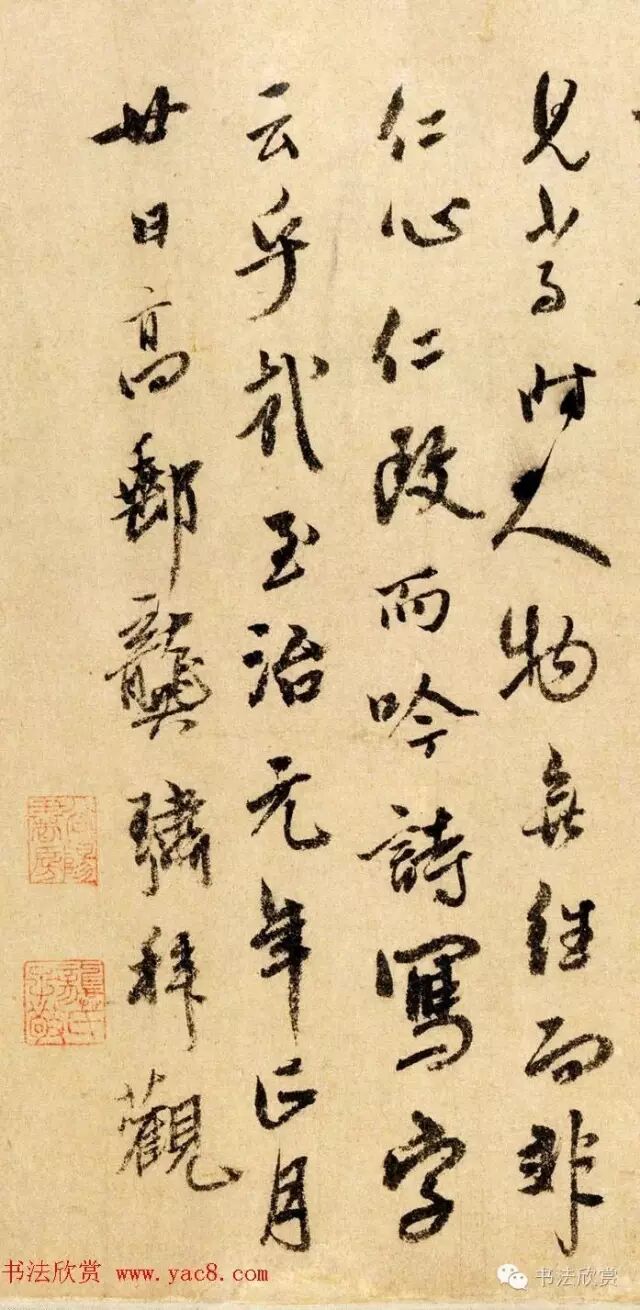 見當時人物無往而非
仁心仁政而吟詩寫字
云乎哉至治元年正月
廿日高郵龔璛拜觀
龔氏子敬
书法欣赏 www.yac8.com
书法欣赏